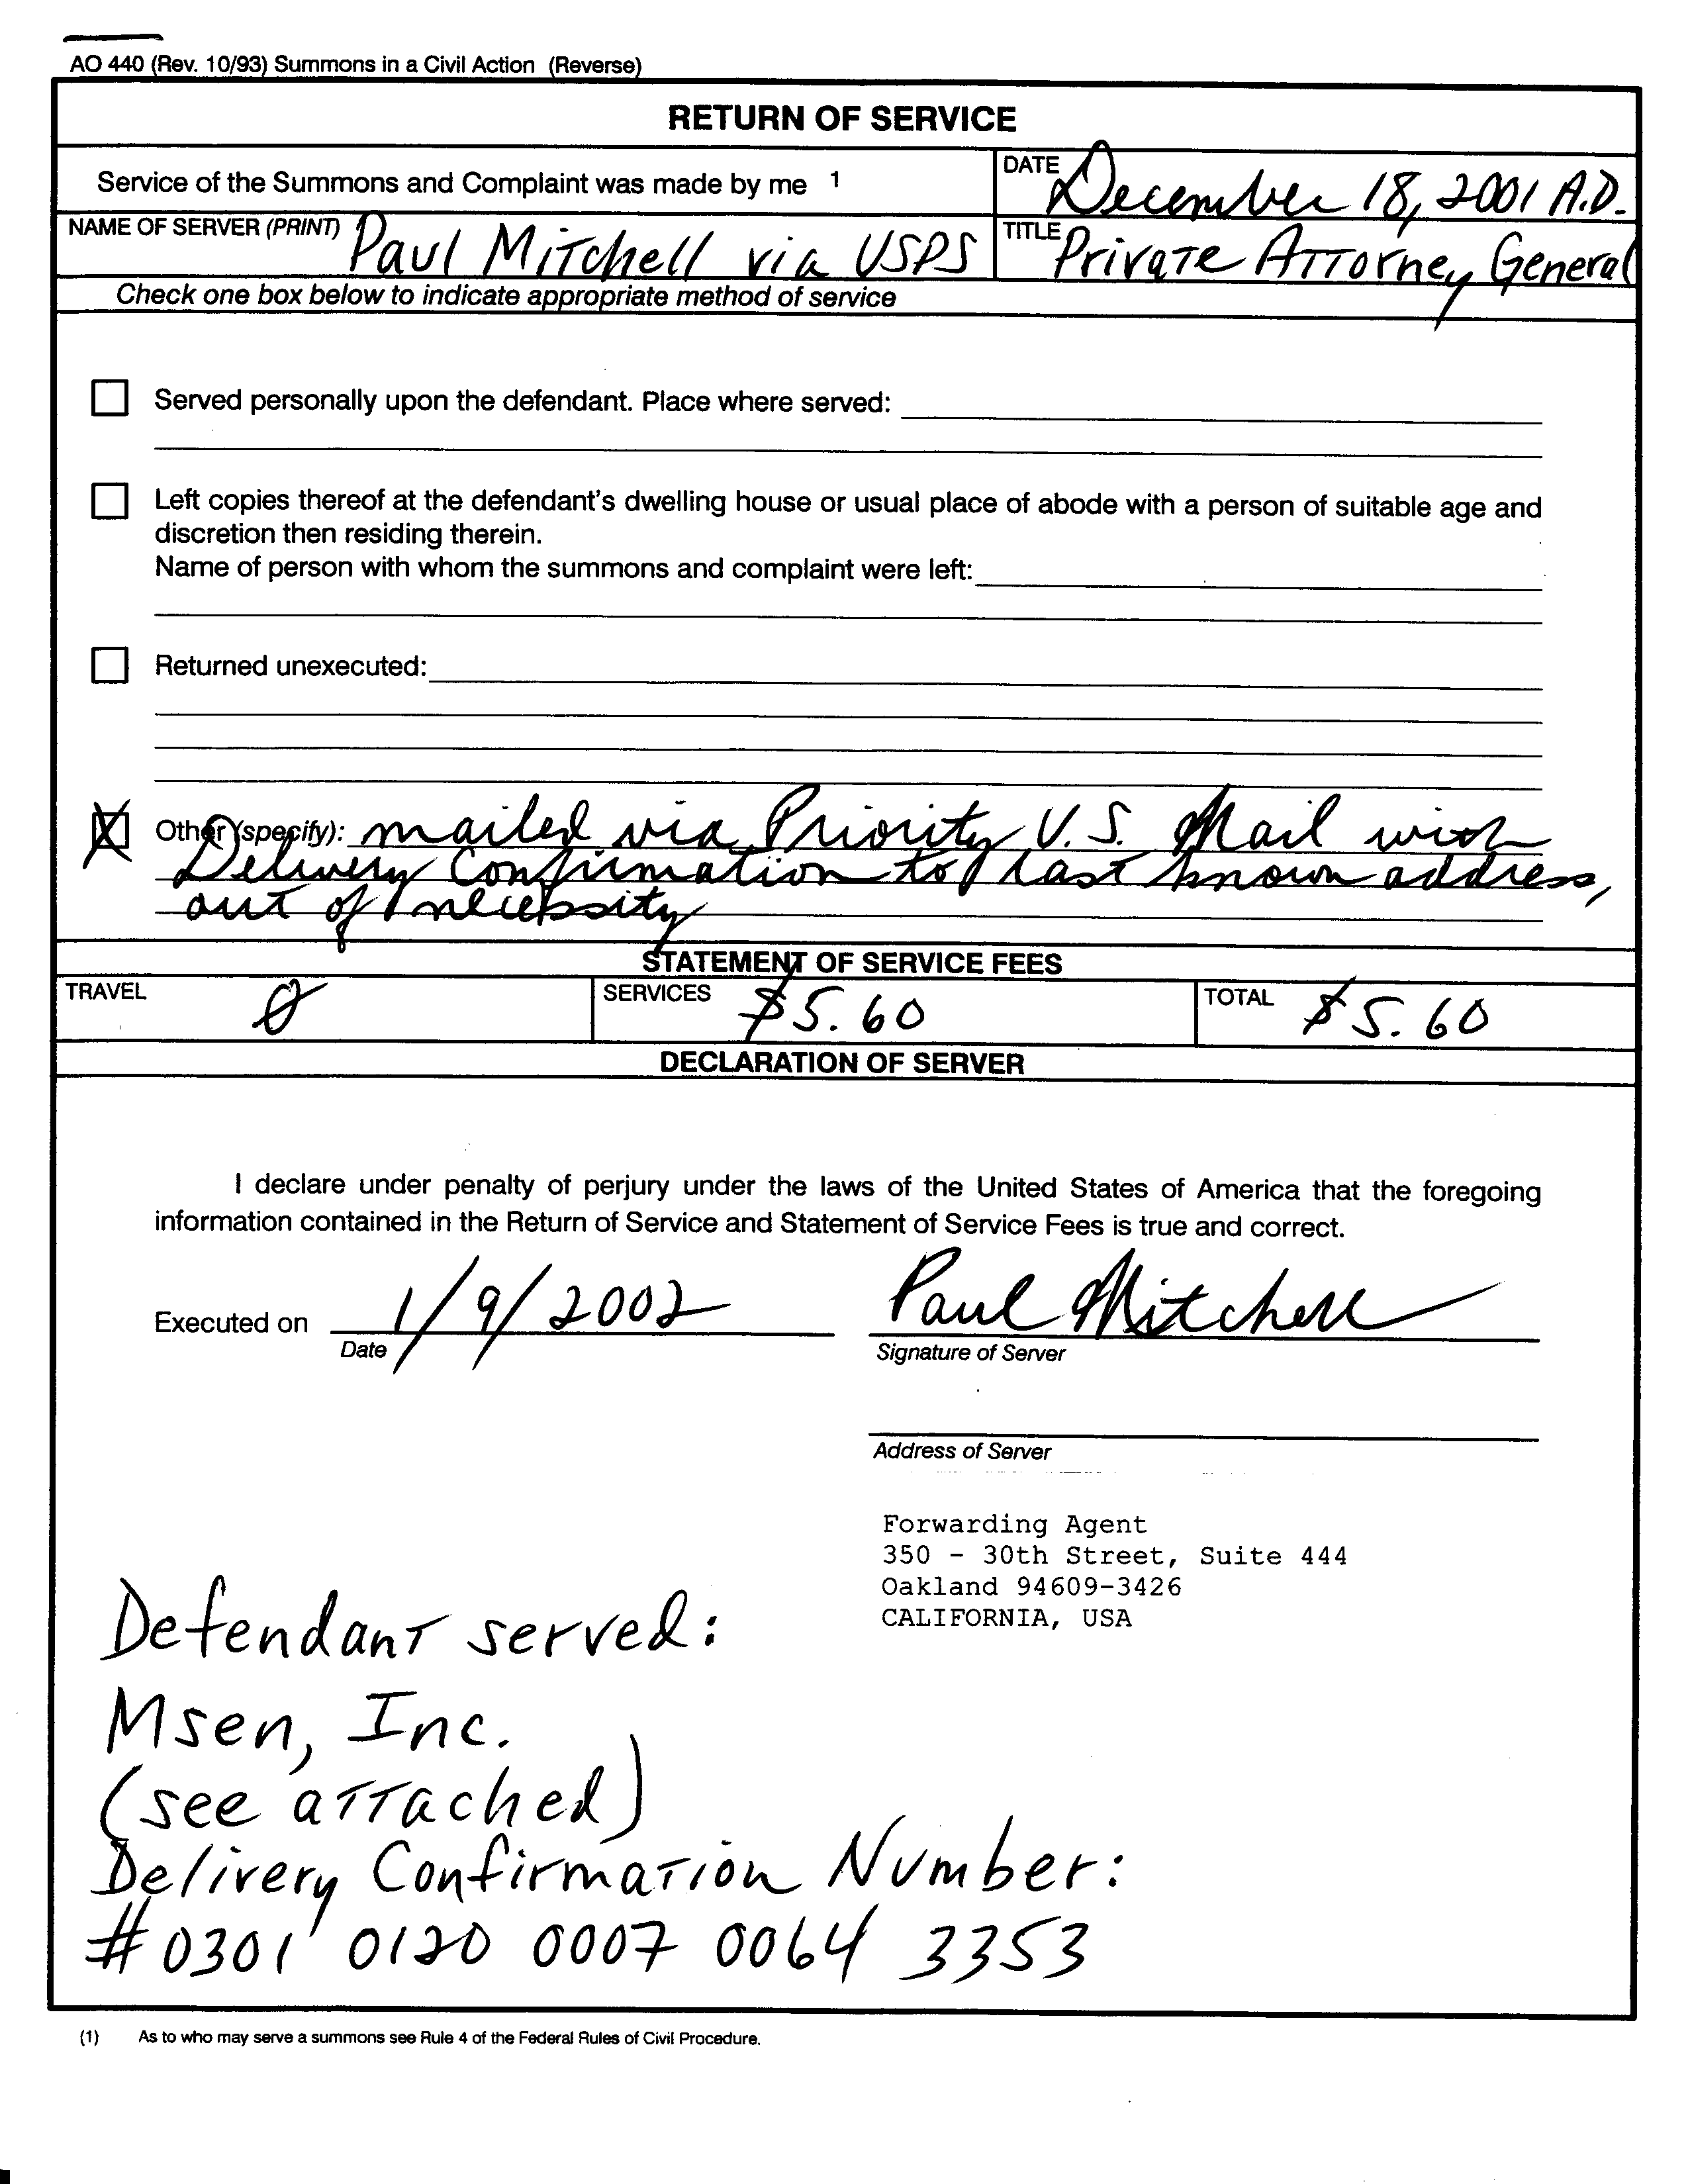 AO 440 (Rev. 10/93) Summons in a Civil Action (Reverse)
RETURN OF SERVICE
Service of the Summons and Complaint was made by me 1
DATE December 18, 2001 A.D.
NAME OF SERVER (PRINT) Paul Mitchell via USPS
TITLE Private Attorney General
Check one box below to indicate appropriate method of service
Served personally upon the defendant. Place where served:
Left copies thereof at the defendant's dwelling house or usual place of abode with a person of suitable age and
discretion then residing therein.
Name of person with whom the summons and complaint were left:
Returned unexecuted:
X Other (specify): mailed via Priority U.S. Mail with
Delivery Confirmation to last known address,
out of necessity
STATEMENT OF SERVICE FEES
TRAVEL 0 SERVICES $5.60 TOTAL $5.60
DECLARATION OF SERVER
I declare under penalty of perjury under the laws of the United States of America that the foregoing
information contained in the Return of Service and Statement of Service Fees is true and correct.
Executed on 1/9/2002 Paul Mitchell
Date Signature of Server
Address of Server
Forwarding Agent
350 - 30th Street, Suite 444
Oakland 94609-3426
CALIFORNIA, USA
Defendant served:
Msen, Inc.
(see attached)
Delivery Confirmation Number:
#0301 0120 0007 0064 3353
(1) As to who may serve a summons see Rule 4 of the Federal Rules of Civil Procedure.